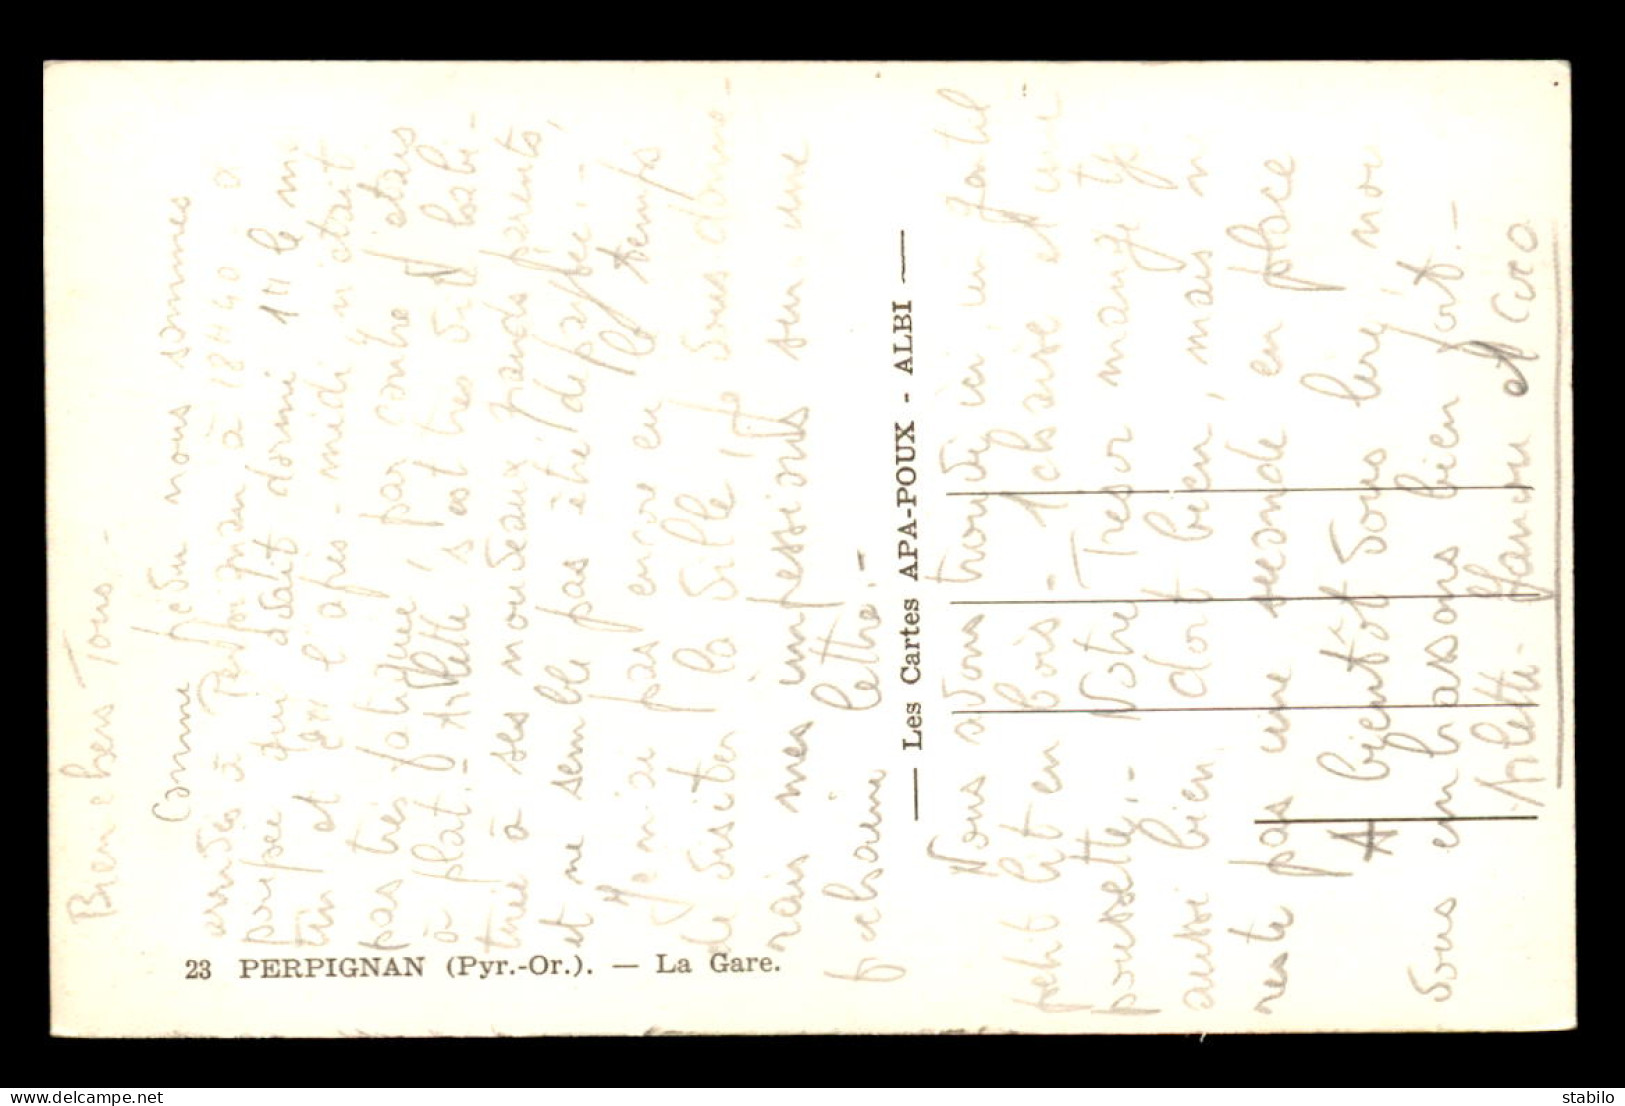 Bien chers Tous -
Comme prévu nous sommes
arrivés à Perpignan à 18H40
parce qu' avait dormi 1H le ma
tin et l'après-midi n'était
pas très fatiguée, par contre j'étais
à plat. - Arlette s'est très vite habi-
tuée à ses nouveaux grands parents,
et ne semble pas être dépaysée. -
Je n'ai pas encore eu le temps
de visiter la ville, je vous donne-
rais mes impressions sur une
prochaine lettre. -
Nous avons trouvé ici un gentil
petit lit en bois - 1 chaise et une
poussette. - Notre Trésor mange t
aussi bien dort bien, mais n
reste pas une seconde en place
A bientôt vous lire, nou
vous embrassons bien fort. -
Arlette - Manou et Coco
23 PERPIGNAN (Pyr.-Or.). — La Gare.
— Les Cartes APA-POUX - ALBI —
www.delcampe.net
stabilo